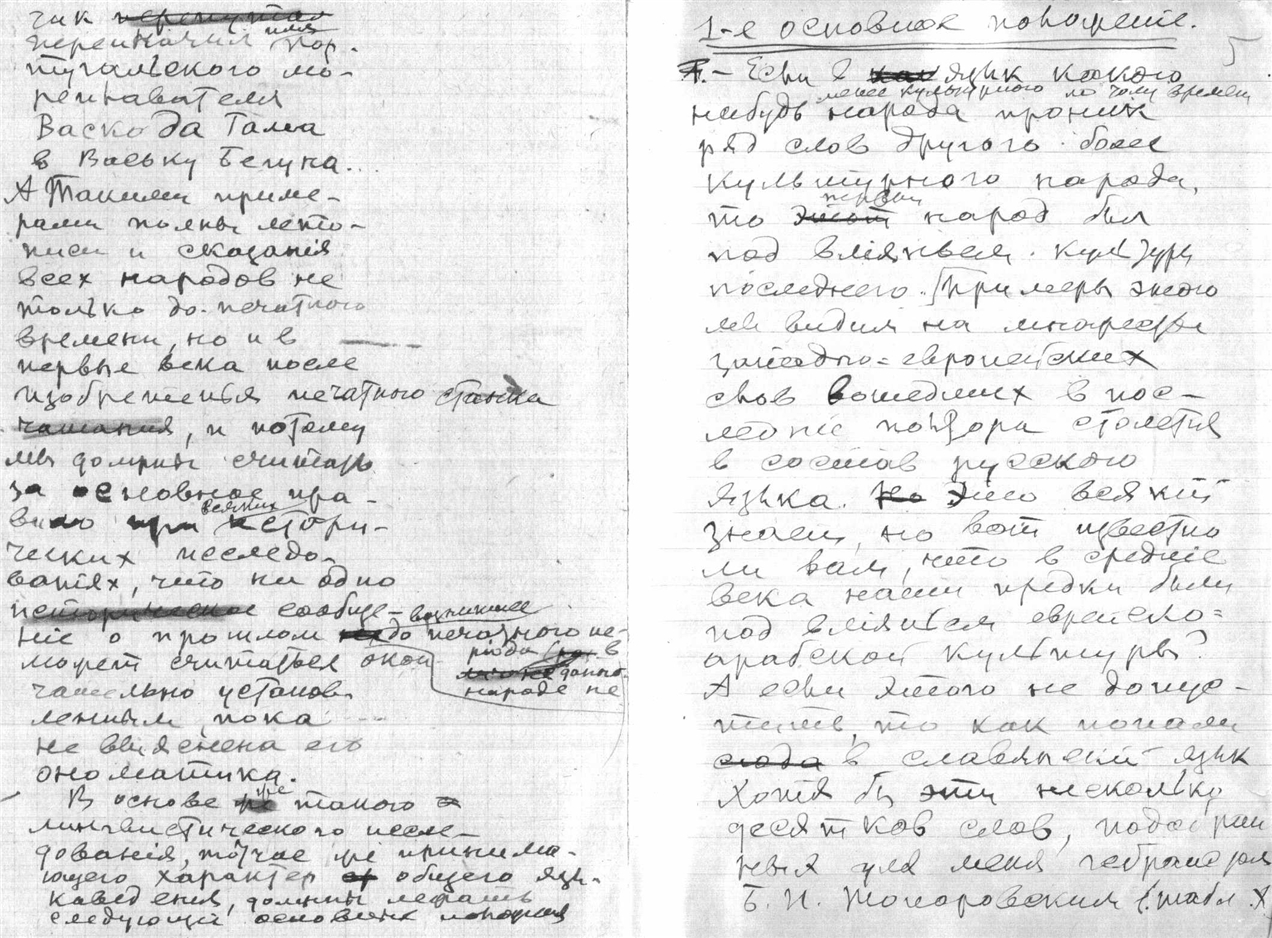 чик перепутал
переиначил имя пор-
тугальского мо-
реплавателя
Васко да Гама
в Ваську Бегуна...
А Такими приме-
рами полны лето-
писи и сказанія
всех народов не
только до-печатного
времени, но и в
первые века после
изобретенья печатного станка
, и потому
мы должны считать
за основное пра-
вило при всяких истори-
ческих изследо-
ваніях, что ни одно
историческое сообще-
ніе о прошлом возникшее
до печатного пе-
риода в
народе не
может считаться окон-
чательно установ-
ленным, пока
не выяснена его
ономатика.
В основе же такого
лингвистического изсле-
дованія, тотчас же принима-
ющего характер общего язы-
каведения, должны лежать
следующій основныя
1-е основное положеніе.
5
1.- Если в язык какого
нибудь менее культурного по тому времени
народа проник
ряд слов другого более
культурного народа,
то первый народ был
под вліяньем культуры
последнего. Примеры этого
мы видим на множестве
западно=европейских
слов вошедших в пос-
ледніе полтора столетія
в состав русского
языка. Но Это всякій
знает, но вот известно
ли вам, что в средніе
века наши предки были
под вліяніем еврейско=
арабской культуры?
А если этого не допус-
тить, то как попали
сюда в славянскій язык
хотя бы эти несколько
десятков слов, подобран
ныя для меня гебраистом
Б. И. Топоровским (табл. X